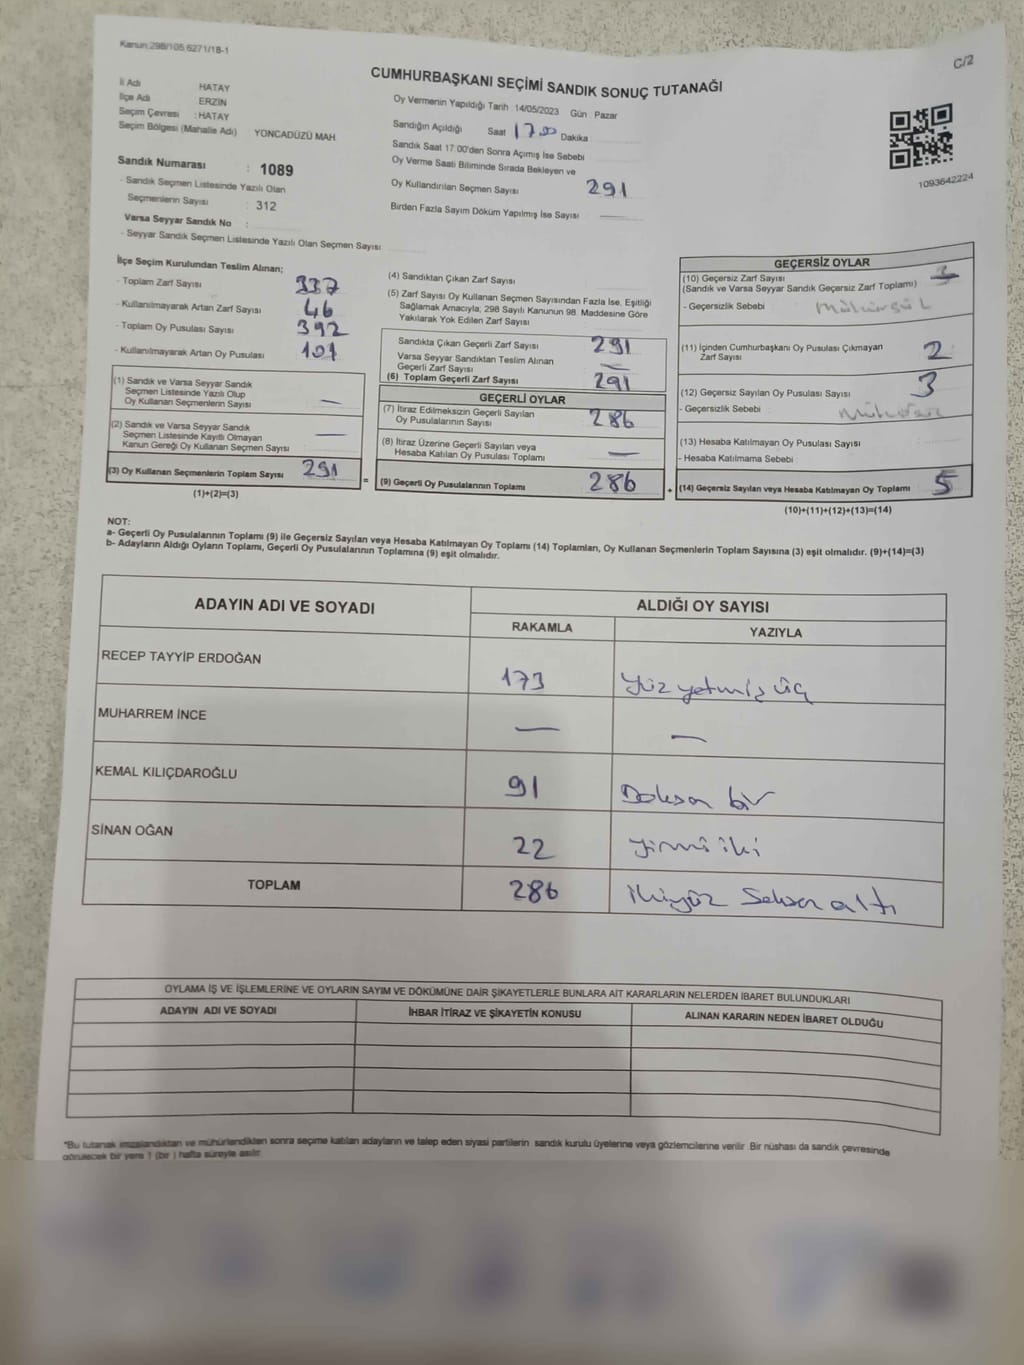 Kanun:298/105,6271/18-1
C/2
CUMHURBAŞKANI SEÇİMİ SANDIK SONUÇ TUTANAĞI
İl Adı HATAY
İlçe Adı ERZİN
Seçim Çevresi : HATAY
Seçim Bölgesi (Mahalle Adı) YONCADÜZÜ MAH.
Sandık Numarası : 1089
- Sandık Seçmen Listesinde Yazılı Olan
Seçmenlerin Sayısı : 312
Varsa Seyyar Sandık No :
- Seyyar Sandık Seçmen Listesinde Yazılı Olan Seçmen Sayısı
Oy Vermenin Yapıldığı Tarih :14/05/2023 Gün : Pazar
Sandığın Açıldığı Saat 17.00 Dakika
Sandık Saat 17:00'den Sonra Açımış İse Sebebi
Oy Verme Saati Bitiminde Sırada Bekleyen ve
Oy Kullandırılan Seçmen Sayısı 291
Birden Fazla Sayım Döküm Yapılmış İse Sayısı —
1093642224
İlçe Seçim Kurulundan Teslim Alınan;
- Toplam Zarf Sayısı 337
- Kullanılmayarak Artan Zarf Sayısı 46
- Toplam Oy Pusulası Sayısı 392
- Kullanılmayarak Artan Oy Pusulası 101
(1) Sandık ve Varsa Seyyar Sandık
Seçmen Listesinde Yazılı Olup
Oy Kullanan Seçmenlerin Sayısı —
(2) Sandık ve Varsa Seyyar Sandık
Seçmen Listesinde Kayıtlı Olmayan
Kanun Gereği Oy Kullanan Seçmen Sayısı —
(3) Oy Kullanan Seçmenlerin Toplam Sayısı 291
(1)+(2)=(3)
(4) Sandıktan Çıkan Zarf Sayısı
(5) Zarf Sayısı Oy Kullanan Seçmen Sayısından Fazla İse, Eşitliği
Sağlamak Amacıyla; 298 Sayılı Kanunun 98. Maddesine Göre
Yakılarak Yok Edilen Zarf Sayısı
Sandıkta Çıkan Geçerli Zarf Sayısı 291
Varsa Seyyar Sandıktan Teslim Alınan
Geçerli Zarf Sayısı —
(6) Toplam Geçerli Zarf Sayısı 291
GEÇERLİ OYLAR
(7) İtiraz Edilmeksizin Geçerli Sayılan
Oy Pusulalarının Sayısı 286
(8) İtiraz Üzerine Geçerli Sayılan veya
Hesaba Katılan Oy Pusulası Toplamı —
= (9) Geçerli Oy Pusulalarının Toplamı 286
GEÇERSİZ OYLAR
(10) Geçersiz Zarf Sayısı
(Sandık ve Varsa Seyyar Sandık Geçersiz Zarf Toplamı)
- Geçersizlik Sebebi
(11) İçinden Cumhurbaşkanı Oy Pusulası Çıkmayan
Zarf Sayısı 2
(12) Geçersiz Sayılan Oy Pusulası Sayısı 3
- Geçersizlik Sebebi :
(13) Hesaba Katılmayan Oy Pusulası Sayısı
- Hesaba Katılmama Sebebi
+ (14) Geçersiz Sayılan veya Hesaba Katılmayan Oy Toplamı 5
(10)+(11)+(12)+(13)=(14)
NOT:
a- Geçerli Oy Pusulalarının Toplamı (9) ile Geçersiz Sayılan veya Hesaba Katılmayan Oy Toplamı (14) Toplamları, Oy Kullanan Seçmenlerin Toplam Sayısına (3) eşit olmalıdır. (9)+(14)=(3)
b- Adayların Aldığı Oyların Toplamı, Geçerli Oy Pusulalarının Toplamına (9) eşit olmalıdır.
ADAYIN ADI VE SOYADI ALDIĞI OY SAYISI
RAKAMLA YAZIYLA
RECEP TAYYİP ERDOĞAN 173 Yüz yetmiş üç
MUHARREM İNCE — —
KEMAL KILIÇDAROĞLU 91 Doksan bir
SİNAN OĞAN 22 yirmi iki
TOPLAM 286 ikiyüz Seksen altı
OYLAMA İŞ VE İŞLEMLERİNE VE OYLARIN SAYIM VE DÖKÜMÜNE DAİR ŞİKAYETLERLE BUNLARA AİT KARARLARIN NELERDEN İBARET BULUNDUKLARI
ADAYIN ADI VE SOYADI İHBAR İTİRAZ VE ŞİKAYETİN KONUSU ALINAN KARARIN NEDEN İBARET OLDUĞU
*Bu tutanak imzalandıktan ve mühürlendikten sonra seçime katılan adayların ve talep eden siyasi partilerin sandık kurulu üyelerine veya gözlemcilerine verilir. Bir nüshası da sandık çevresinde
görülecek bir yere 1 (bir ) hafta süreyle asılır.